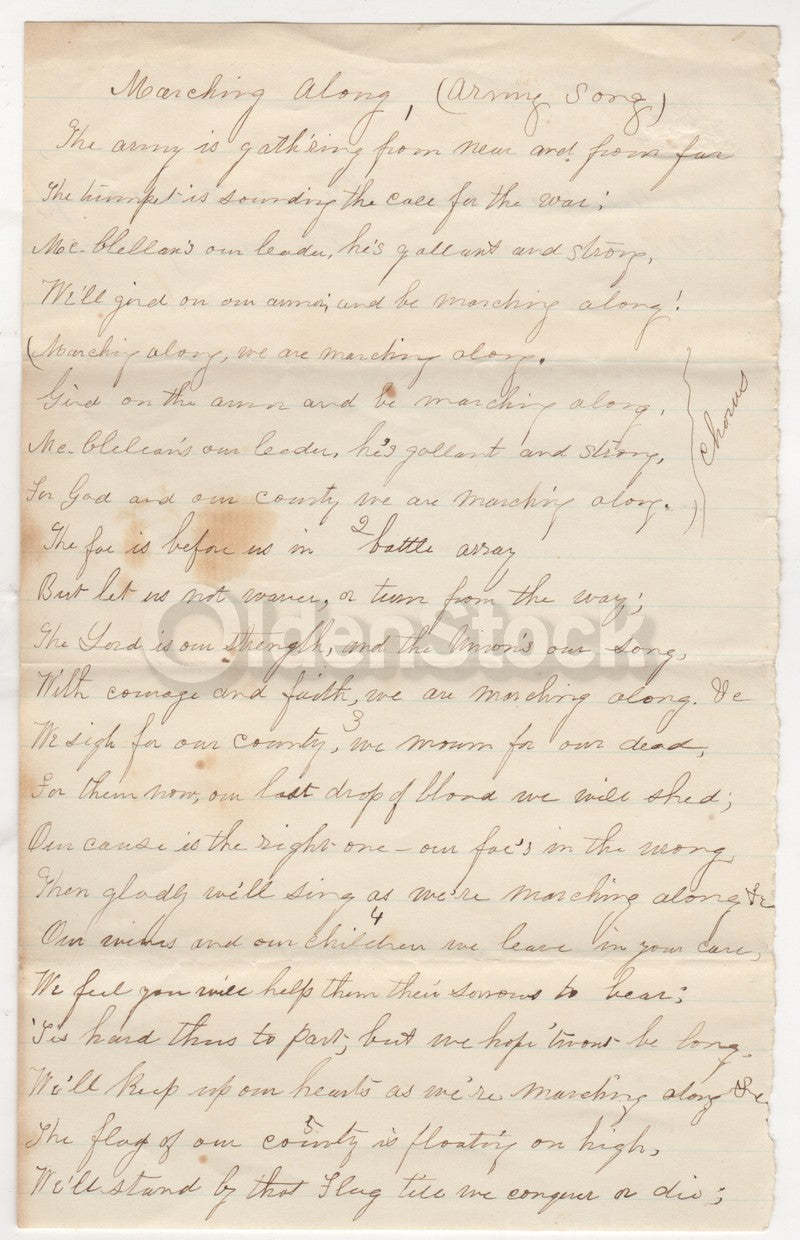 Marching Along, (Army Song)
The army is gath'ring from near and from far
The trumpet is sounding the call for the war;
Mc-Clellan's our leader, he's gallant and strong,
We'll gird on our armor, and be marching along!
(Marching along, we are marching along.
Gird on the armor and be marching along,
Mc-Clellan's our leader, he's gallant and strong,
For God and our county we are marching along.)
Chorus
2
The foe is before us in battle array
But let us not waver, or turn from the way;
The Lord is our strength, and the Union's our song,
With courage and faith, we are marching along. &c
3
We sigh for our county, we mourn for our dead,
For them now, our last drop of blood we will shed;
Our cause is the right one - our foe's in the wrong,
Then gladly we'll sing as we're marching along &c
4
Our wives and our children we leave in your care,
We feel you will help them their sorrows to bear;
'Tis hard thus to part, but we hope 'twont be long,
We'll keep up our hearts as we're marching along &c
5
The flag of our county is floating on high,
We'll stand by that Flag till we conquer or die;
OldenStock